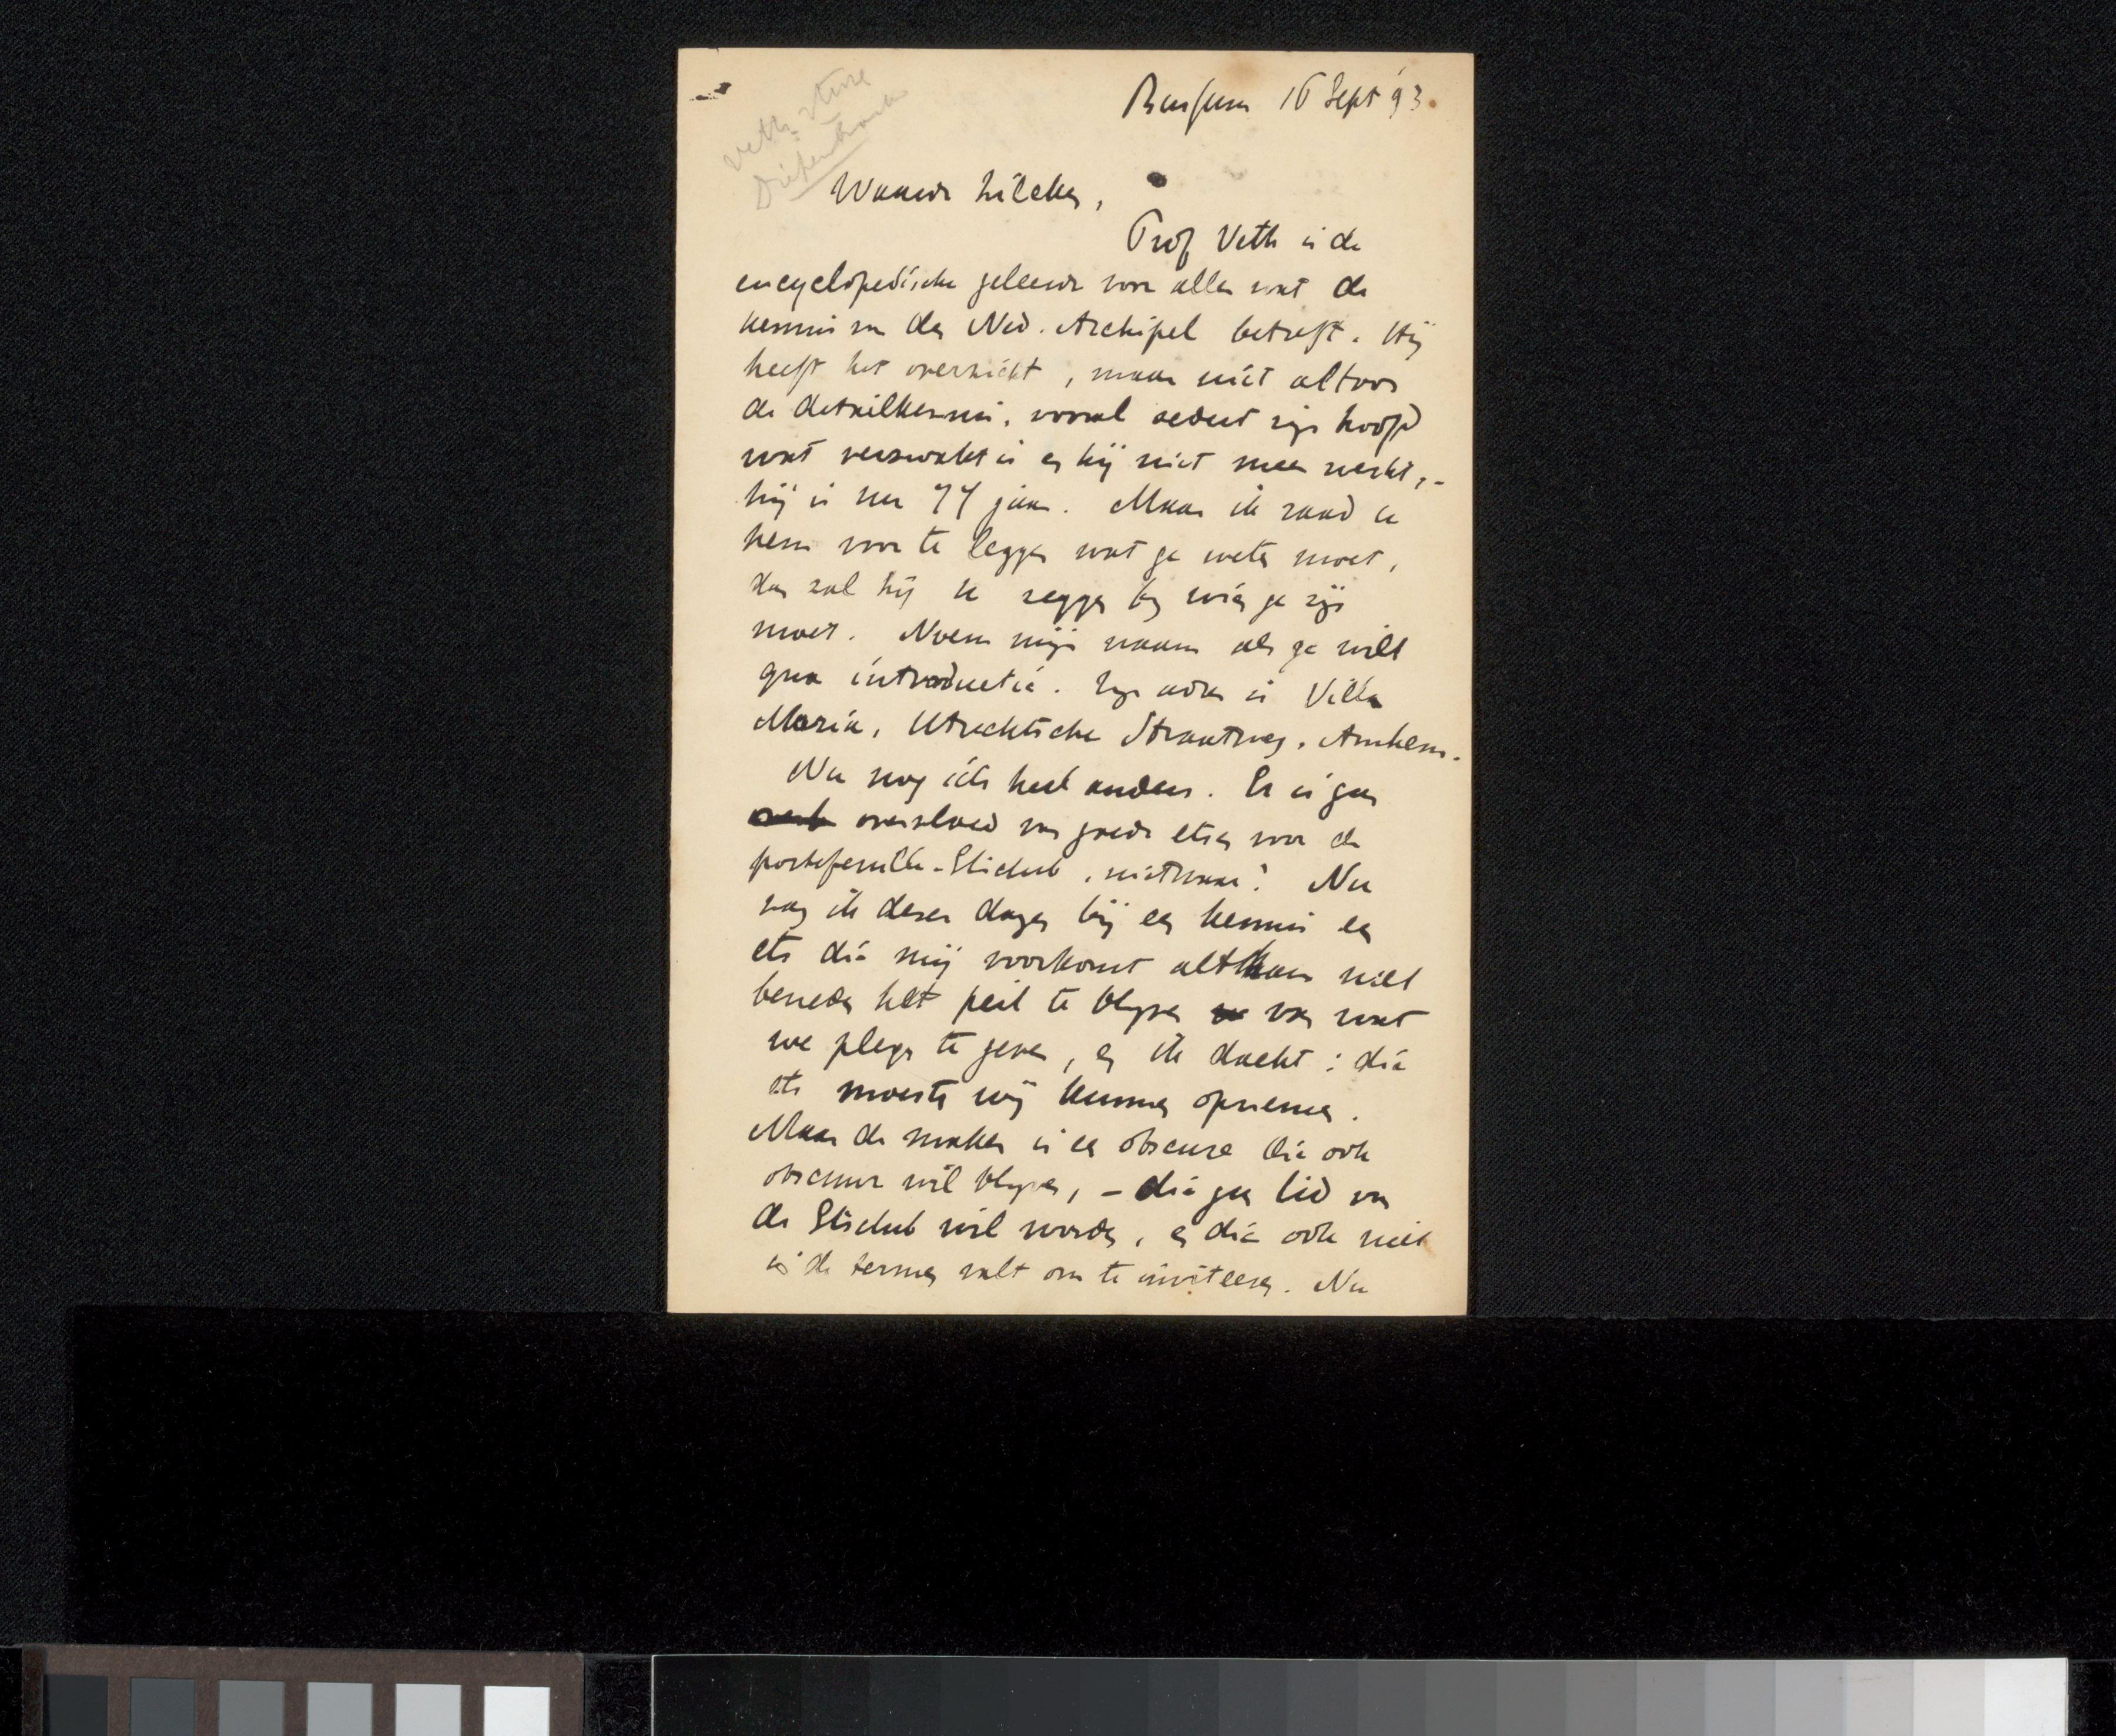 Bussum 16 Sept '93.
Veth
Diepenbrock
Waarde Zilcken,
Prof Veth is de
encyclopedische geleerde voor alles wat de
kennis van den Ned. Archipel betreft. Hij
heeft het overzicht, maar niet altoos
de detailkennis, vooral sedert zijn hoofd
wat verzwakt is en hij niet meer werkt, -
hij is nu 79 jaar. Maar ik raad u
hem voor te leggen wat ge weten moet,
dan zal hij u zeggen bij wien ge zijn
moet. Noem mijn naam als ge wilt
qua introductie. Zijn adres is Villa
Maria, Utrechtsche Straatweg, Arnhem.
Nu nog iets heel anders. Er is geen
overvloed van goede etsen voor de
portefeuille-Etsclub, nietwaar? Nu
zag ik dezer dagen bij een kennis een
ets die mij voorkomt althans niet
beneden het peil te blijven van wat
we plegen te geven, en ik dacht: die
ets moesten wij kunnen opnemen.
Maar de maker is een obscure die ook
obscuur wil blijven, - die geen lid van
de Etsclub wil worden, en die ook niet
in de termen valt om te inviteeren. Nu